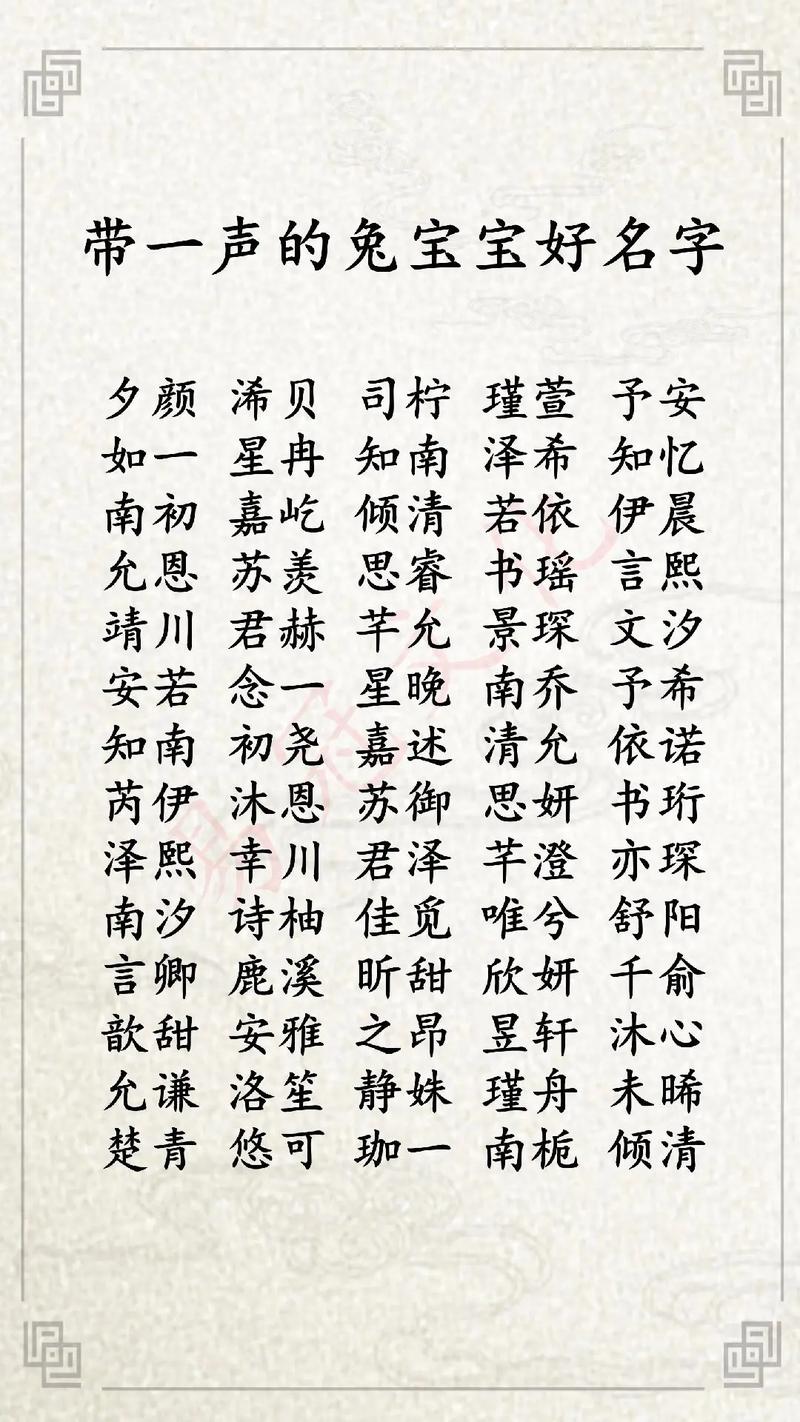 带一声的兔宝宝好名字
夕颜 浠贝 司柠 瑾萱 予安
如一 星冉 知南 泽希 知忆
南初 嘉屹 倾清 若依 伊晨
允恩 苏羡 思睿 书瑶 言熙
靖川 君赫 芊允 景琛 文汐
安若 念一 星晚 南乔 予希
知南 初尧 嘉述 清允 依诺
芮伊 沐恩 苏御 思妍 书珩
泽熙 幸川 君泽 芊澄 亦琛
南汐 诗柚 佳觅 唯兮 舒阳
言卿 鹿溪 昕甜 欣妍 千俞
歆甜 安雅 之昂 昱轩 沐心
允谦 洛笙 静姝 瑾舟 未晞
楚青 悠可 珈一 南栀 倾清